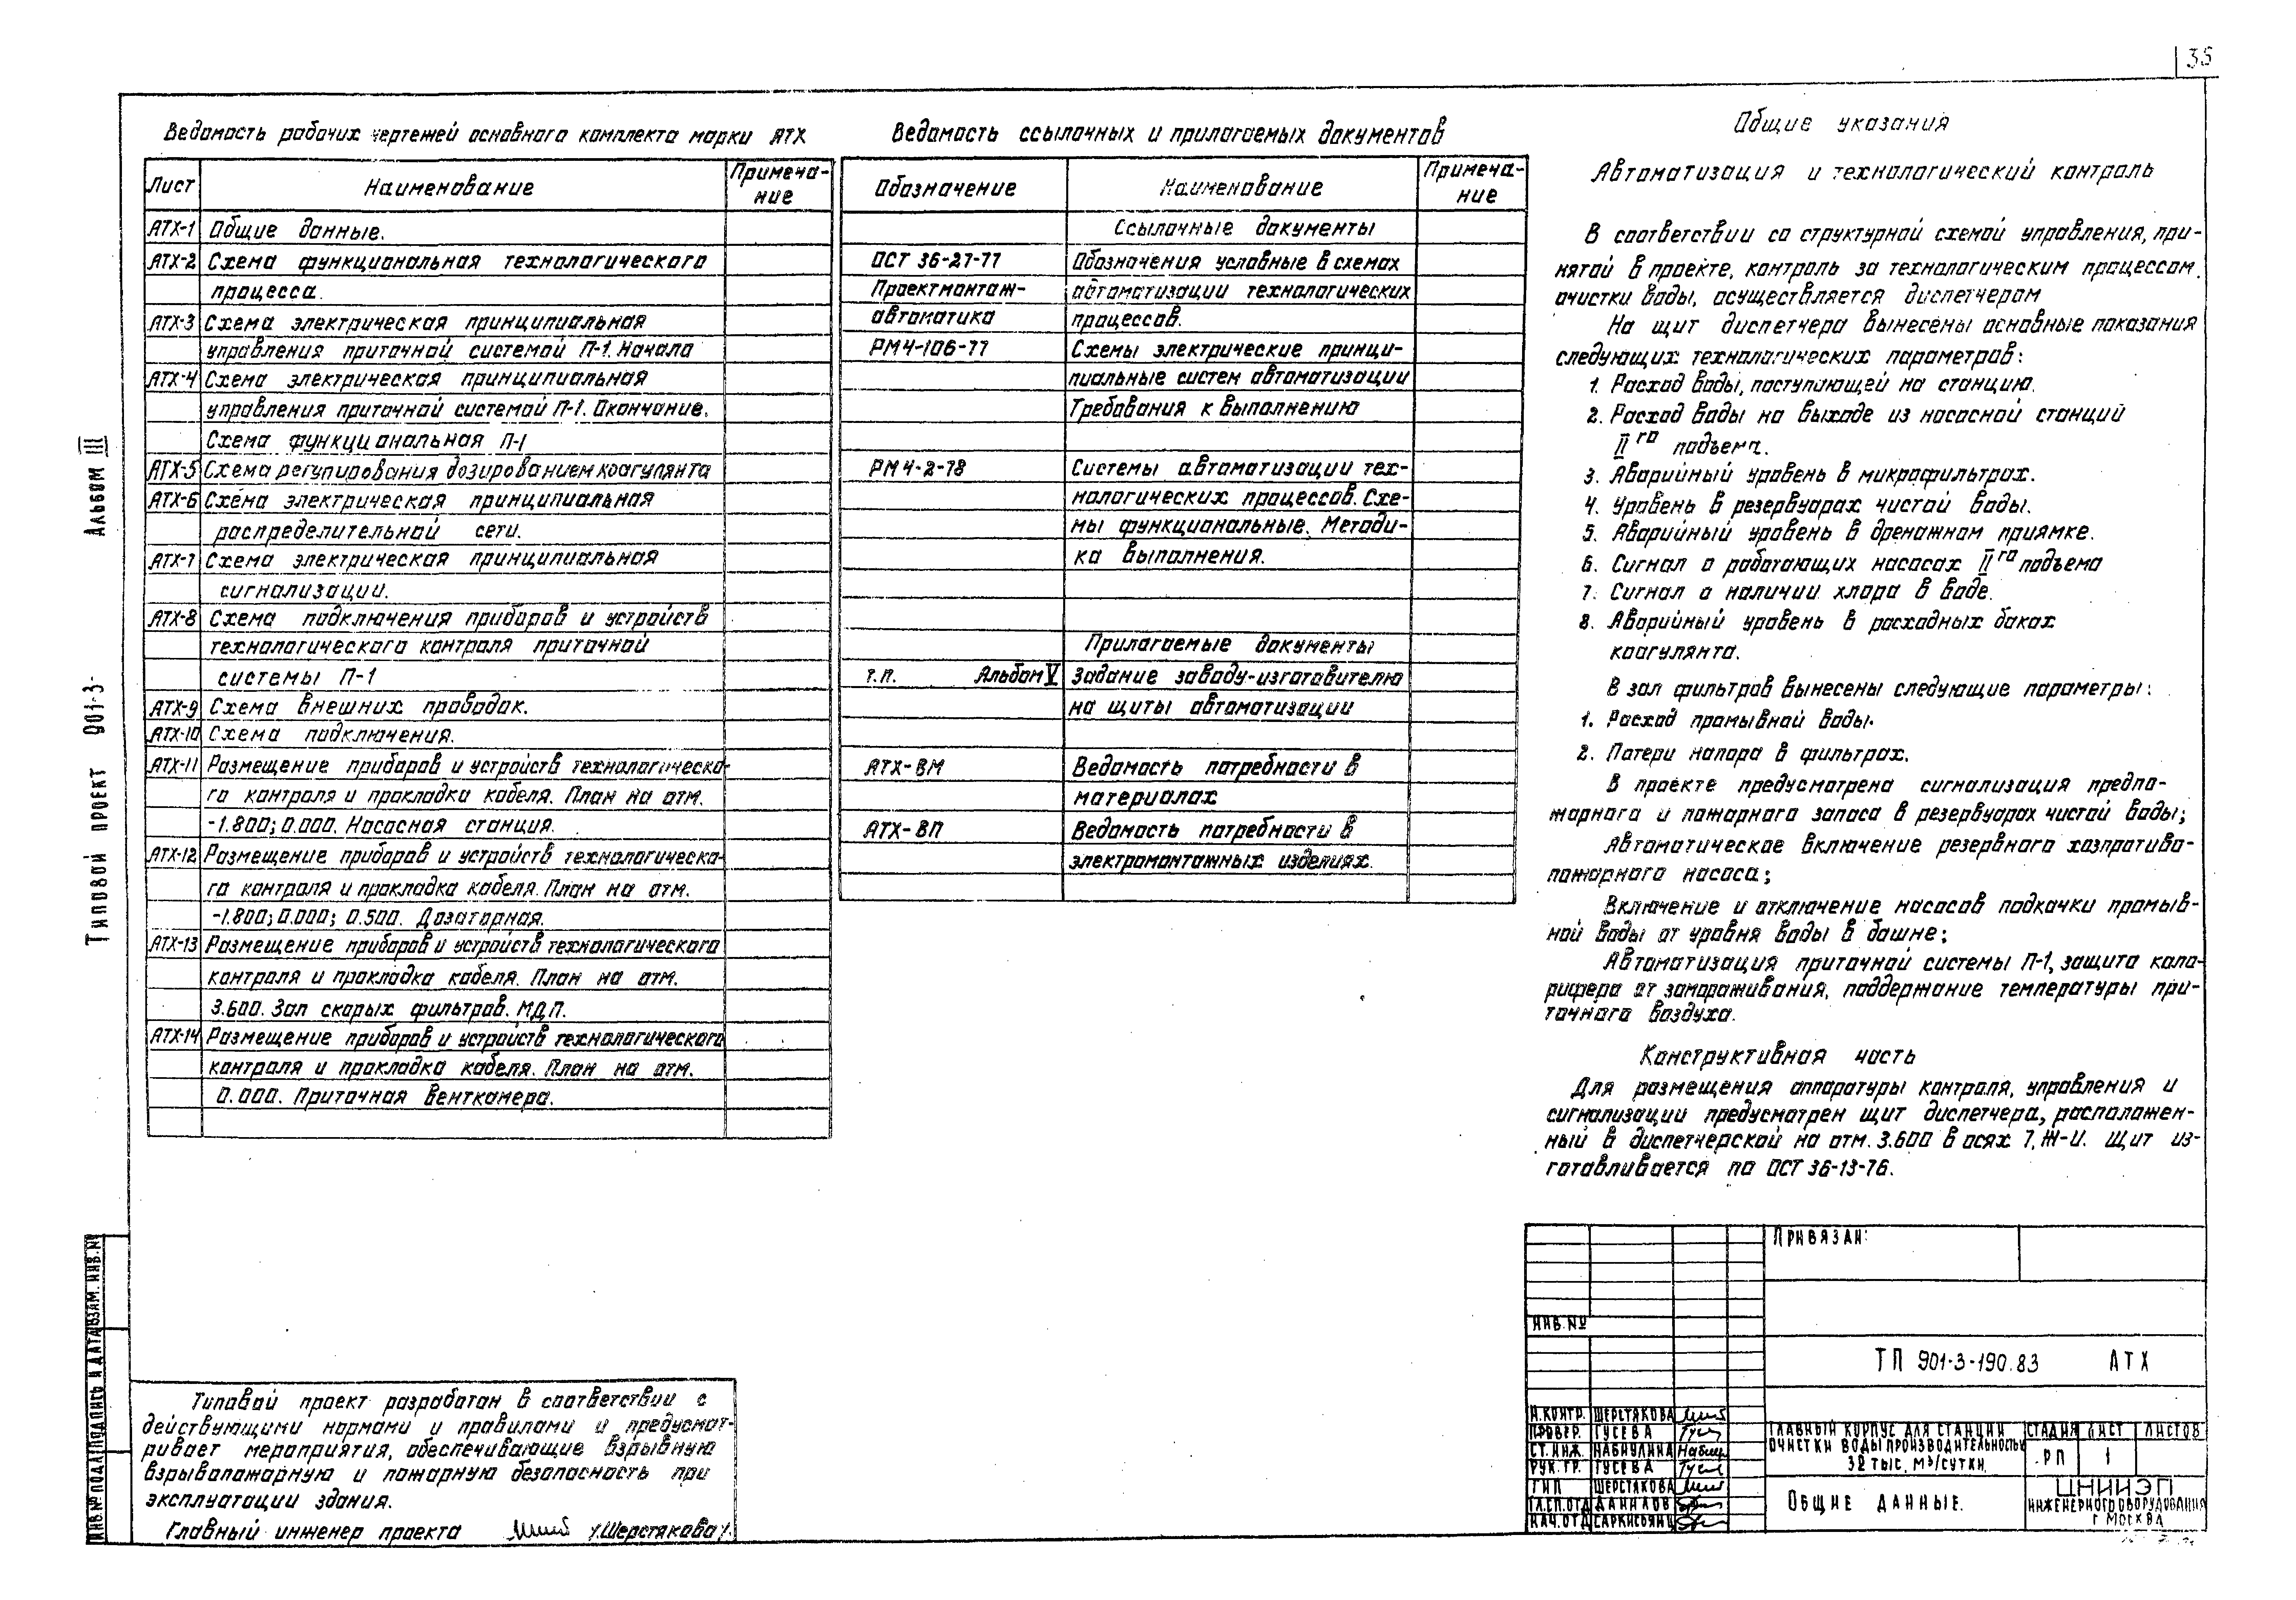 35
Ведомость рабочих чертежей основного комплекта марки АТХ
Лист Наименование Примеча-
ние
АТХ-1 Общие данные.
АТХ-2 Схема функциональная технологического
процесса.
АТХ-3 Схема электрическая принципиальная
управления приточной системой П-1. Начало
АТХ-4 Схема электрическая принципиальная
управления приточной системой П-1. Окончание.
Схема функциональная П-1
АТХ-5 Схема регулирования дозированием коагулянта
АТХ-6 Схема электрическая принципиальная
распределительной сети.
АТХ-7 Схема электрическая принципиальная
сигнализации.
АТХ-8 Схема подключения приборов и устройств
технологического контроля приточной
системы П-1
АТХ-9 Схема внешних проводок.
АТХ-10 Схема подключения.
АТХ-11 Размещение приборов и устройств технологическо-
го контроля и прокладка кабеля. План на отм.
-1.800; 0.000. Насосная станция.
АТХ-12 Размещение приборов и устройств технологическо-
го контроля и прокладка кабеля. План на отм.
-1.800; 0.000; 0.500. Дозаторная.
АТХ-13 Размещение приборов и устройств технологического
контроля и прокладка кабеля. План на отм.
3.600. Зал скорых фильтров. МДП.
АТХ-14 Размещение приборов и устройств технологического
контроля и прокладка кабеля. План на отм.
0.000. Приточная венткамера.
Ведомость ссылочных и прилагаемых документов
Обозначение Наименование Примеча-
ние
Ссылочные документы
ОСТ 36-27-77 Обозначения условные в схемах
Проектмонтаж- автоматизации технологических
автоматика процессов.
РМ4-106-77 Схемы электрические принци-
пиальные систем автоматизации
Требования к выполнению
РМ4-2-78 Системы автоматизации тех-
нологических процессов. Схе-
мы функциональные. Методи-
ка выполнения.
Прилагаемые документы
т.п. Альбом V Задание заводу-изготовителю
на щиты автоматизации
АТХ-ВМ Ведомость потребности в
материалах
АТХ-ВП Ведомость потребности в
электромонтажных изделиях.
Общие указания
Автоматизация и технологический контроль
В соответствии со структурной схемой управления, при-
нятой в проекте, контроль за технологическим процессом
очистки воды, осуществляется диспетчером
На щит диспетчера вынесены основные показания
следующих технологических параметров:
1. Расход воды, поступающей на станцию.
2. Расход воды на выходе из насосной станций
IIго подъема.
3. Аварийный уровень в микрофильтрах.
4. Уровень в резервуарах чистой воды.
5. Аварийный уровень в дренажном приямке.
6. Сигнал о работающих насосах IIго подъема
7. Сигнал о наличии хлора в воде.
8. Аварийный уровень в расходных баках
коагулянта.
В зал фильтров вынесены следующие параметры:
1. Расход промывной воды.
2. Потери напора в фильтрах.
В проекте предусмотрена сигнализация предпо-
жарного и пожарного запаса в резервуарах чистой воды;
Автоматическое включение резервного хозпротиво-
пожарного насоса;
Включение и отключение насосов подкачки промыв-
ной воды от уровня воды в башне;
Автоматизация приточной системы П-1, защита кало-
рифера от замораживания, поддержание температуры при-
точного воздуха.
Конструктивная часть
Для размещения аппаратуры контроля, управления и
сигнализации предусмотрен щит диспетчера, расположен-
ный в диспетчерской на отм. 3.600 в осях 7, Ж-И. Щит из-
готавливается по ОСТ 36-13-76.
Альбом III
Типовой проект 901-3-
Инв.№ подл. Подпись и дата Взам. инв.№
Типовой проект разработан в соответствии с
действующими нормами и правилами и предусмат-
ривает мероприятия, обеспечивающие взрывную
взрывопожарную и пожарную безопасность при
эксплуатации здания.
Главный инженер проекта /Шерстякова/.
Привязан:
Инв.№
ТП 901-3-190.83 АТХ
Н.контр. Шерстякова
Провер. Гусева
Ст.инж. Набиулина
Рук.гр. Гусева
ГИП Шерстякова
Гл.сп.отд Данилов
Нач.отд Саркисьянц
Главный корпус для станции
очистки воды производительностью
32 тыс. м³/сутки.
Стадия Лист Листов
РП 1
Общие данные.
ЦНИИЭП
инженерного оборудования
г. Москва